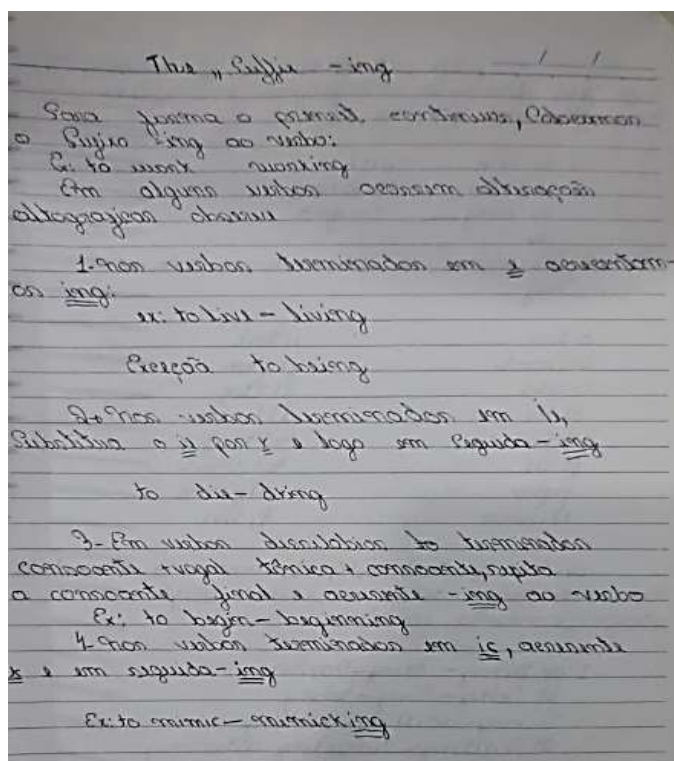 The „ Suffix -ing / /
Para forma o present continuous, Colocamos
o Sufixo -ing ao verbo:
to work working
Em alguns verbos ocorrem alterações
observe
1- Nos verbos terminados em e acrescentam-
os ing:
ex: to live - living
Exceção to being
2- Nos verbos terminados em ie,
Substitua o ie por y e logo em seguida - ing
to die - dying
3- Em verbos to terminados
consoante + vogal tônica + consoante, repita
a consoante final e acrescente -ing ao verbo
Ex: to begin - beginning
4- Nos verbos terminados em ic, acrescente
k e em seguida - ing
Ex: to mimic - mimicking